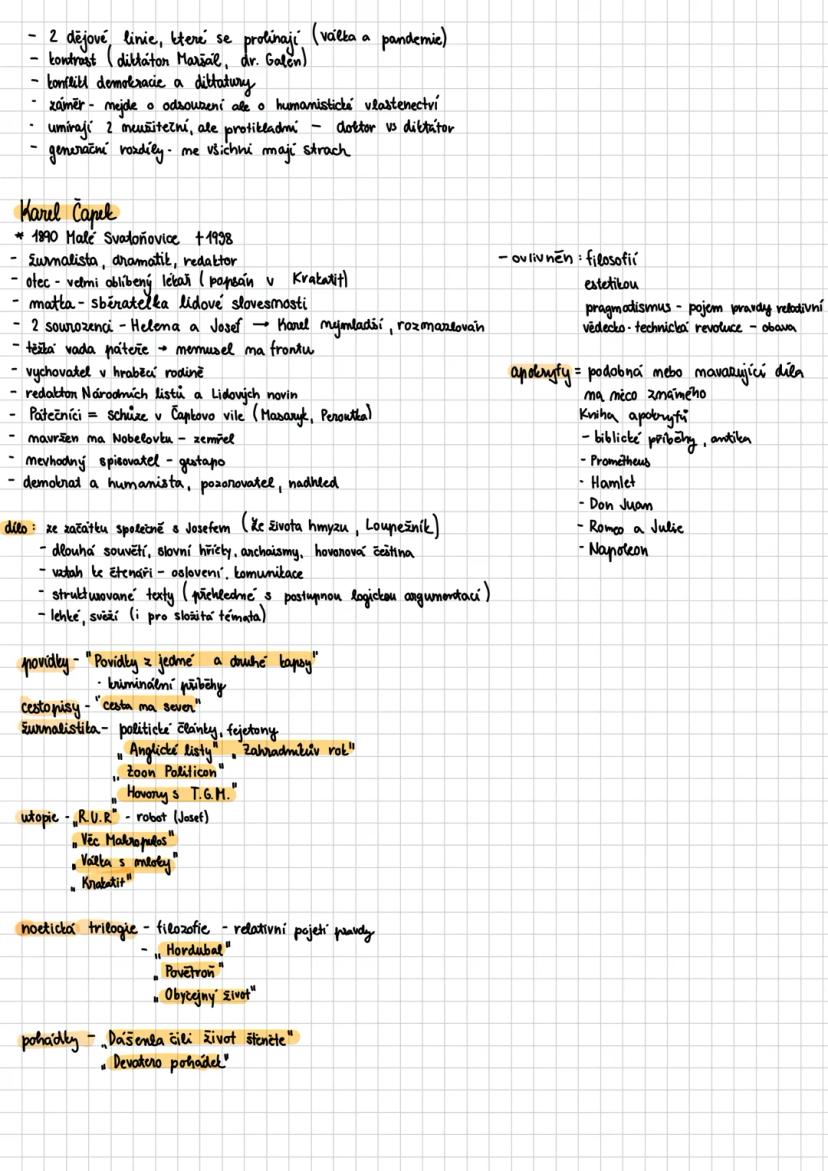 - 2 dějové linie, které se prolínají (válka a pandemie)
- kontrast (diktátor Maršál, dr. Galén)
- konflikt demokracie a diktatury
- záměr - nejde o odsouzení ale o humanistické vlastenectví
- umírají 2 neužiteční, ale protikladní - doktor vs diktátor
- generační rozdíly - ne všichni mají strach
Karel Čapek
* 1890 Malé Svatoňovice †1938
- žurnalista, dramatik, redaktor
- otec - velmi oblíbený lékař (popsán v Krakatit)
- matka - sběratelka lidové slovesnosti
- 2 sourozenci - Helena a Josef → Karel nejmladší, rozmazlován
- těžká vada páteře → nemusel na frontu
- vychovatel v hraběcí rodině
- redaktor Národních listů a Lidových novin
- Pátečníci = schůze v Čapkovo vile (Masaryk, Peroutka)
- navržen na Nobelovku - zemřel
- nevhodný spisovatel - gestapo
- demokrat a humanista, pozorovatel, nadhled
- ovlivněn : filosofií
estetikou
pragmatismus - pojem pravdy relativní
vědecko-technická revoluce - obava
apokryfy = podobná nebo navazující díla
na něco známého
Kniha apokryfů
- biblické příběhy, antika
- Prometheus
- Hamlet
- Don Juan
- Romeo a Julie
- Napoleon
dílo : ze začátku společně s Josefem (Ze života hmyzu, Loupežník)
- dlouhá souvětí, slovní hříčky, archaismy, hovorová čeština
- vztah ke čtenáři - oslovení, komunikace
- strukturované texty (přehledné s postupnou logickou argumentací)
- lehké, svěží (i pro složitá témata)
povídky - "Povídky z jedné a druhé kapsy"
- kriminální příběhy
cestopisy - "cesta na sever"
žurnalistika - politické články, fejetony
„Anglické listy" „Zahradníkův rok"
„Zoon Politicon"
„Hovory s T.G.M."
utopie - „R.U.R" - robot (Josef)
„Věc Makropulos"
„Válka s mloky"
„Krakatit"
noetická trilogie - filozofie - relativní pojetí pravdy
- „Hordubal"
„Povětroň"
„Obyčejný život"
pohádky - „Dášenka čili život štěněte"
„Devatero pohádek"